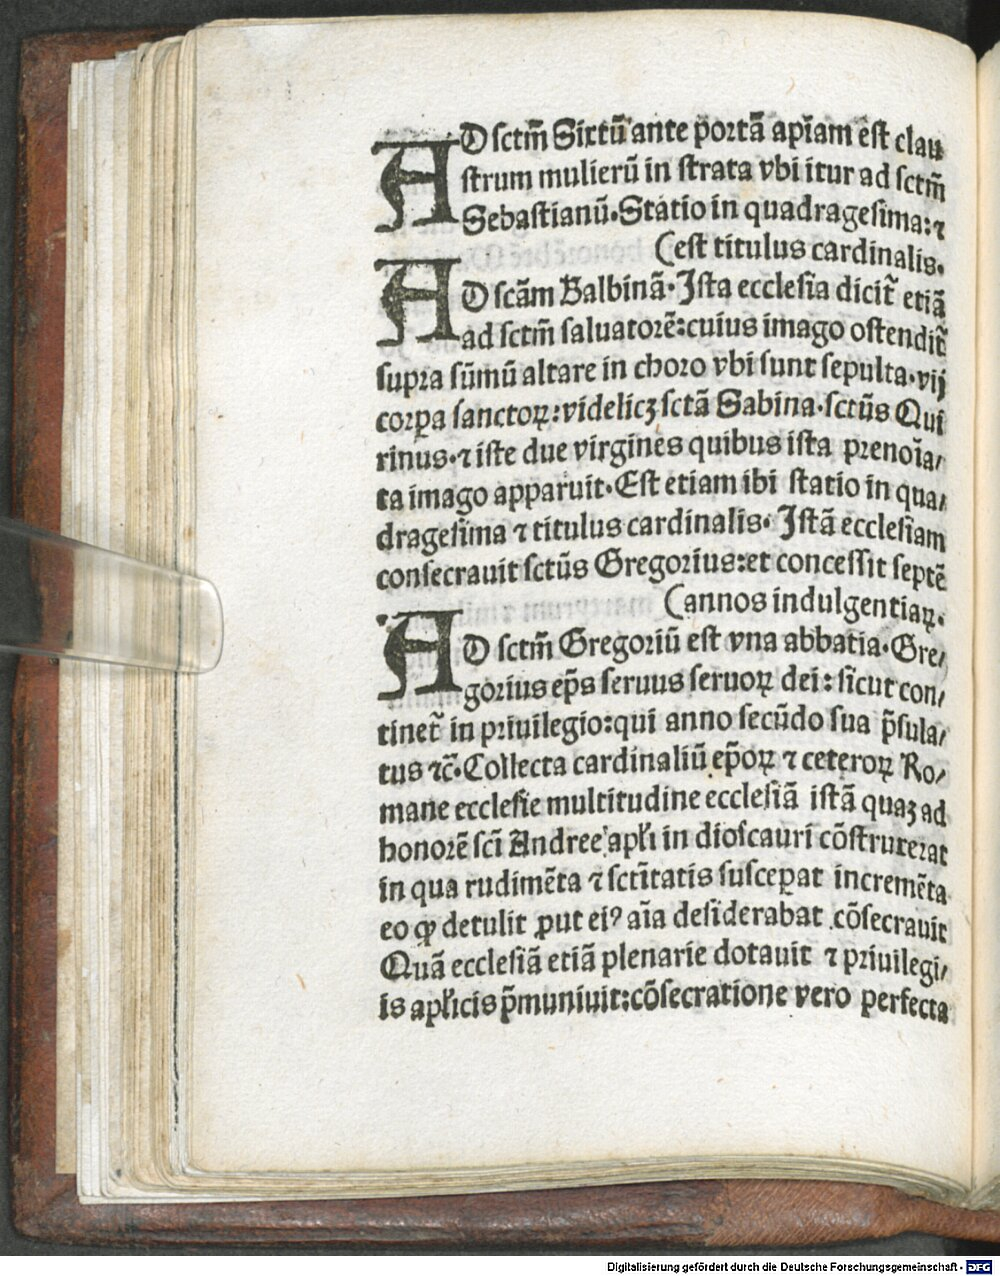 AD sctm̃ Sixtū ante portā apiam est clau
strum mulierū in strata vbi itur ad sctm̃
Sebastianū. Statio in quadragesima: ⁊
(est titulus cardinalis.
AD scām Balbinā. Ista ecclesia dicit̃ etiā
ad sctm̃ saluatorē: cuius imago ostendit̃
supra sūmū altare in choro vbi sunt sepulta. vij
corꝑa sanctoꝝ: videlicꝫ sctā Sabina. sctūs Qui
rinus. ⁊ iste due virgines quibus ista prenoīa/
ta imago apparuit. Est etiam ibi statio in qua/
dragesima ⁊ titulus cardinalis. Istā ecclesiam
consecrauit sctūs Gregorius: et concessit septē
(annos indulgentiaꝝ.
AD sctm̃ Gregoriū est vna abbatia. Gre/
gorius ep̄s seruus seruoꝝ dei: sicut con/
tinet̃ in priuilegio: qui anno secūdo sua p̄sula/
tus ⁊c̄. Collecta cardinaliū ep̄oꝝ ⁊ ceteroꝝ Ro/
mane ecclesie multitudine ecclesiā istā quaꝫ ad
honorē sci̅ Andree apl̅i in dioscauri cōstruxerat
in qua rudimēta ⁊ sctītatis susceꝑat incremēta
eo ꝙ detulit ꝓut eiꝰ aīa desiderabat cōsecrauit
Quā ecclesiā etiā plenarie dotauit ⁊ priuilegi/
is apl̅icis p̄muniuit: cōsecratione vero perfecta
Digitalisierung gefördert durch die Deutsche Forschungsgemeinschaft - DFG